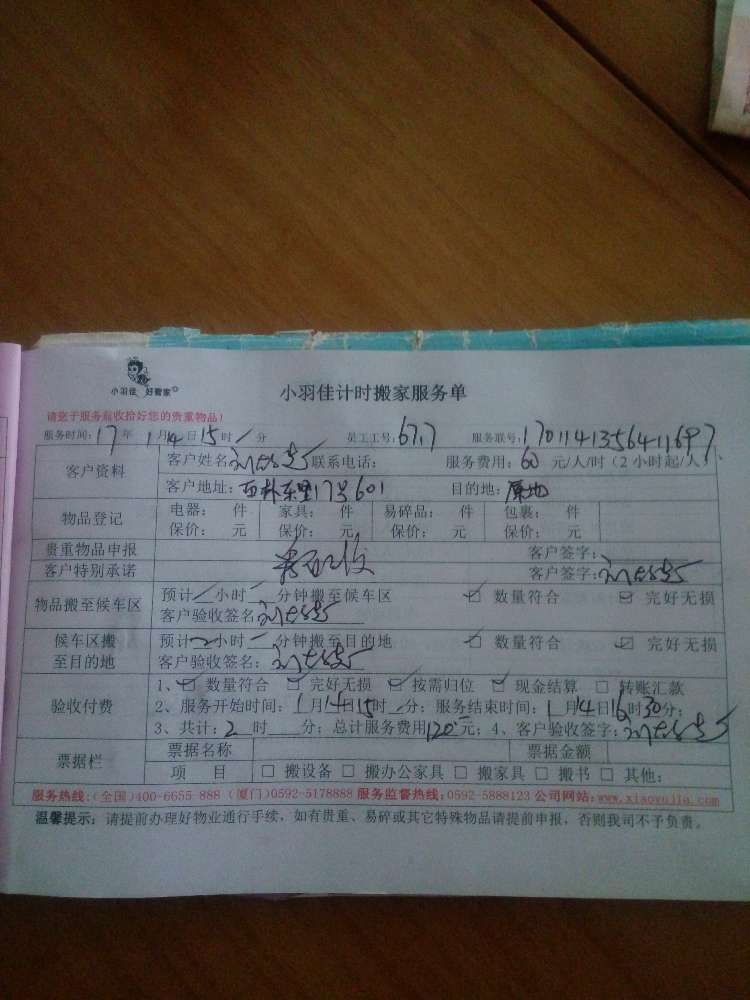 小羽佳 好搬家
小羽佳计时搬家服务单
请您于服务前收拾好您的贵重物品!
服务时间:17年1月14日15时/分 员工工号:67.7 服务联号:
客户资料 客户姓名 联系电话: 服务费用:60元/人/时(2小时起/人)
客户地址: 17号601 目的地:原地
物品登记 电器: 件 家具: 件 易碎品: 件 包裹: 件
保价: 元 保价: 元 保价: 元 保价: 元
贵重物品申报 客户签字:
客户特别承诺 客户签字:
物品搬至候车区 预计/小时/分钟搬至候车区 ☑ 数量符合 ☑ 完好无损
客户验收签名:
候车区搬至目的地 预计 小时 分钟搬至目的地 ☑ 数量符合 ☑ 完好无损
客户验收签名:
验收付费 1、☑ 数量符合 ☑ 完好无损 ☑ 按需归位 ☑ 现金结算 □ 转账汇款
2、服务开始时间:1月14日15时/分;服务结束时间:1月14日16时30分;
3、共计:2时 分;总计服务费用120元;4、客户验收签字:
票据栏 票据名称 票据金额
项 目 □ 搬设备 □ 搬办公家具 □ 搬家具 □ 搬书 □ 其他:
服务热线:(全国)400-6655-888 (厦门)0592-5178888 服务监督热线:0592-5888123 公司网站:www.xiaoyujia.com
温馨提示:请提前办理好物业通行手续,如有贵重、易碎或其它特殊物品请提前申报,否则我司不予负责。